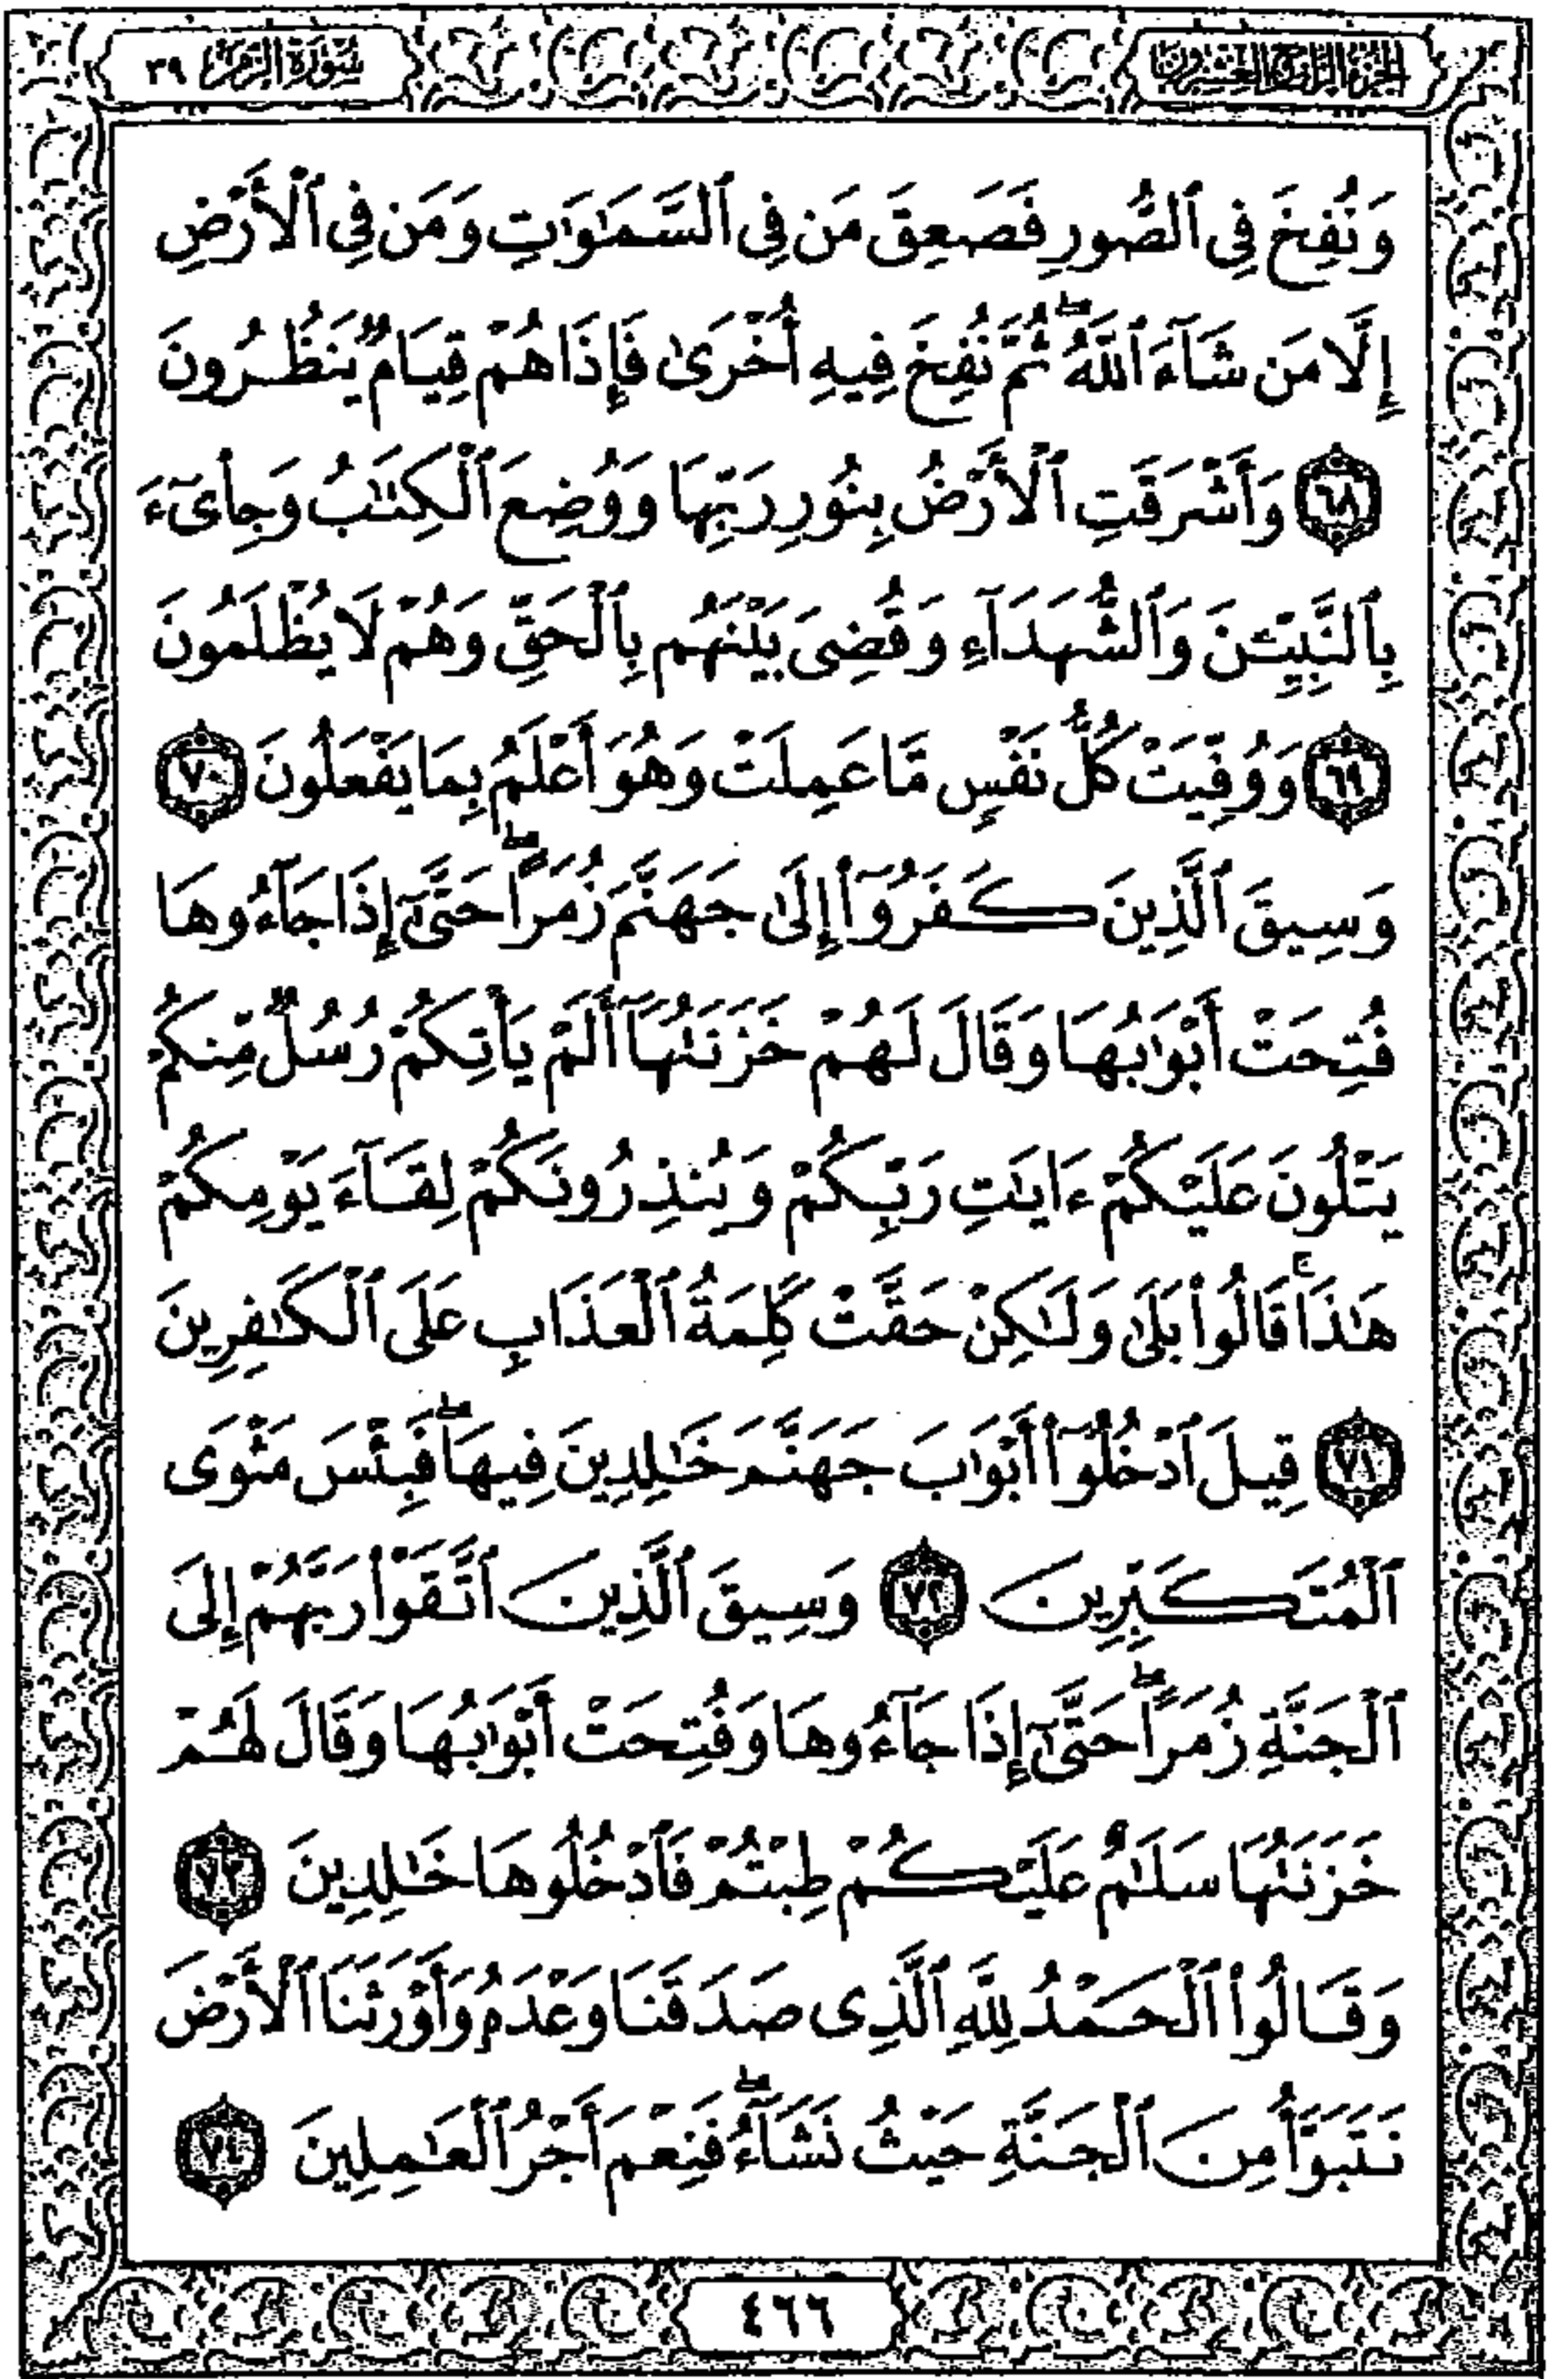 الجزء الرابع والعشرون
سورة الزمر ٣٩
وَنُفِخَ فِى ٱلصُّورِ فَصَعِقَ مَن فِى ٱلسَّمَٰوَٰتِ وَمَن فِى ٱلْأَرْضِ
إِلَّا مَن شَآءَ ٱللَّهُ ۖ ثُمَّ نُفِخَ فِيهِ أُخْرَىٰ فَإِذَا هُمْ قِيَامٌ يَنظُرُونَ
٦٨ وَأَشْرَقَتِ ٱلْأَرْضُ بِنُورِ رَبِّهَا وَوُضِعَ ٱلْكِتَٰبُ وَجِا۟ىٓءَ
بِٱلنَّبِيِّـۧنَ وَٱلشُّهَدَآءِ وَقُضِىَ بَيْنَهُم بِٱلْحَقِّ وَهُمْ لَا يُظْلَمُونَ
٦٩ وَوُفِّيَتْ كُلُّ نَفْسٍ مَّا عَمِلَتْ وَهُوَ أَعْلَمُ بِمَا يَفْعَلُونَ ٧٠
وَسِيقَ ٱلَّذِينَ كَفَرُوٓا۟ إِلَىٰ جَهَنَّمَ زُمَرًا ۖ حَتَّىٰٓ إِذَا جَآءُوهَا
فُتِحَتْ أَبْوَٰبُهَا وَقَالَ لَهُمْ خَزَنَتُهَآ أَلَمْ يَأْتِكُمْ رُسُلٌ مِّنكُمْ
يَتْلُونَ عَلَيْكُمْ ءَايَٰتِ رَبِّكُمْ وَيُنذِرُونَكُمْ لِقَآءَ يَوْمِكُمْ
هَٰذَا ۚ قَالُوا۟ بَلَىٰ وَلَٰكِنْ حَقَّتْ كَلِمَةُ ٱلْعَذَابِ عَلَى ٱلْكَٰفِرِينَ
٧١ قِيلَ ٱدْخُلُوٓا۟ أَبْوَٰبَ جَهَنَّمَ خَٰلِدِينَ فِيهَا ۖ فَبِئْسَ مَثْوَى
ٱلْمُتَكَبِّرِينَ ٧٢ وَسِيقَ ٱلَّذِينَ ٱتَّقَوْا۟ رَبَّهُمْ إِلَى
ٱلْجَنَّةِ زُمَرًا ۖ حَتَّىٰٓ إِذَا جَآءُوهَا وَفُتِحَتْ أَبْوَٰبُهَا وَقَالَ لَهُمْ
خَزَنَتُهَا سَلَٰمٌ عَلَيْكُمْ طِبْتُمْ فَٱدْخُلُوهَا خَٰلِدِينَ ٧٣
وَقَالُوا۟ ٱلْحَمْدُ لِلَّهِ ٱلَّذِى صَدَقَنَا وَعْدَهُۥ وَأَوْرَثَنَا ٱلْأَرْضَ
نَتَبَوَّأُ مِنَ ٱلْجَنَّةِ حَيْثُ نَشَآءُ ۖ فَنِعْمَ أَجْرُ ٱلْعَٰمِلِينَ ٧٤
٤٦٦